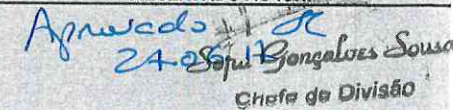 Aprovado
24-05-17
Gonçalves Sousa
Chefe de Divisão